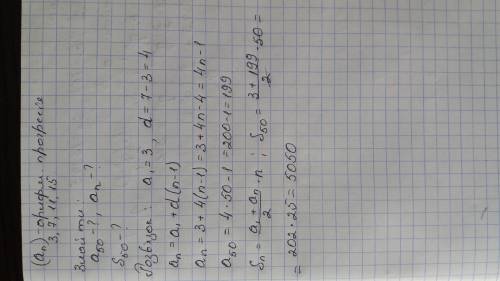 (aₙ) - арифм. прогресія
3, 7, 11, 15
Знайти:
a₅₀ - ?, aₙ - ?
S₅₀ - ?
Розв'язок: a₁ = 3, d = 7 - 3 = 4
aₙ = a₁ + d(n-1)
aₙ = 3 + 4(n-1) = 3 + 4n - 4 = 4n - 1
a₅₀ = 4 · 50 - 1 = 200 - 1 = 199
Sₙ = (a₁ + aₙ)/2 · n ; S₅₀ = (3 + 199)/2 · 50 =
= 202 · 25 = 5050